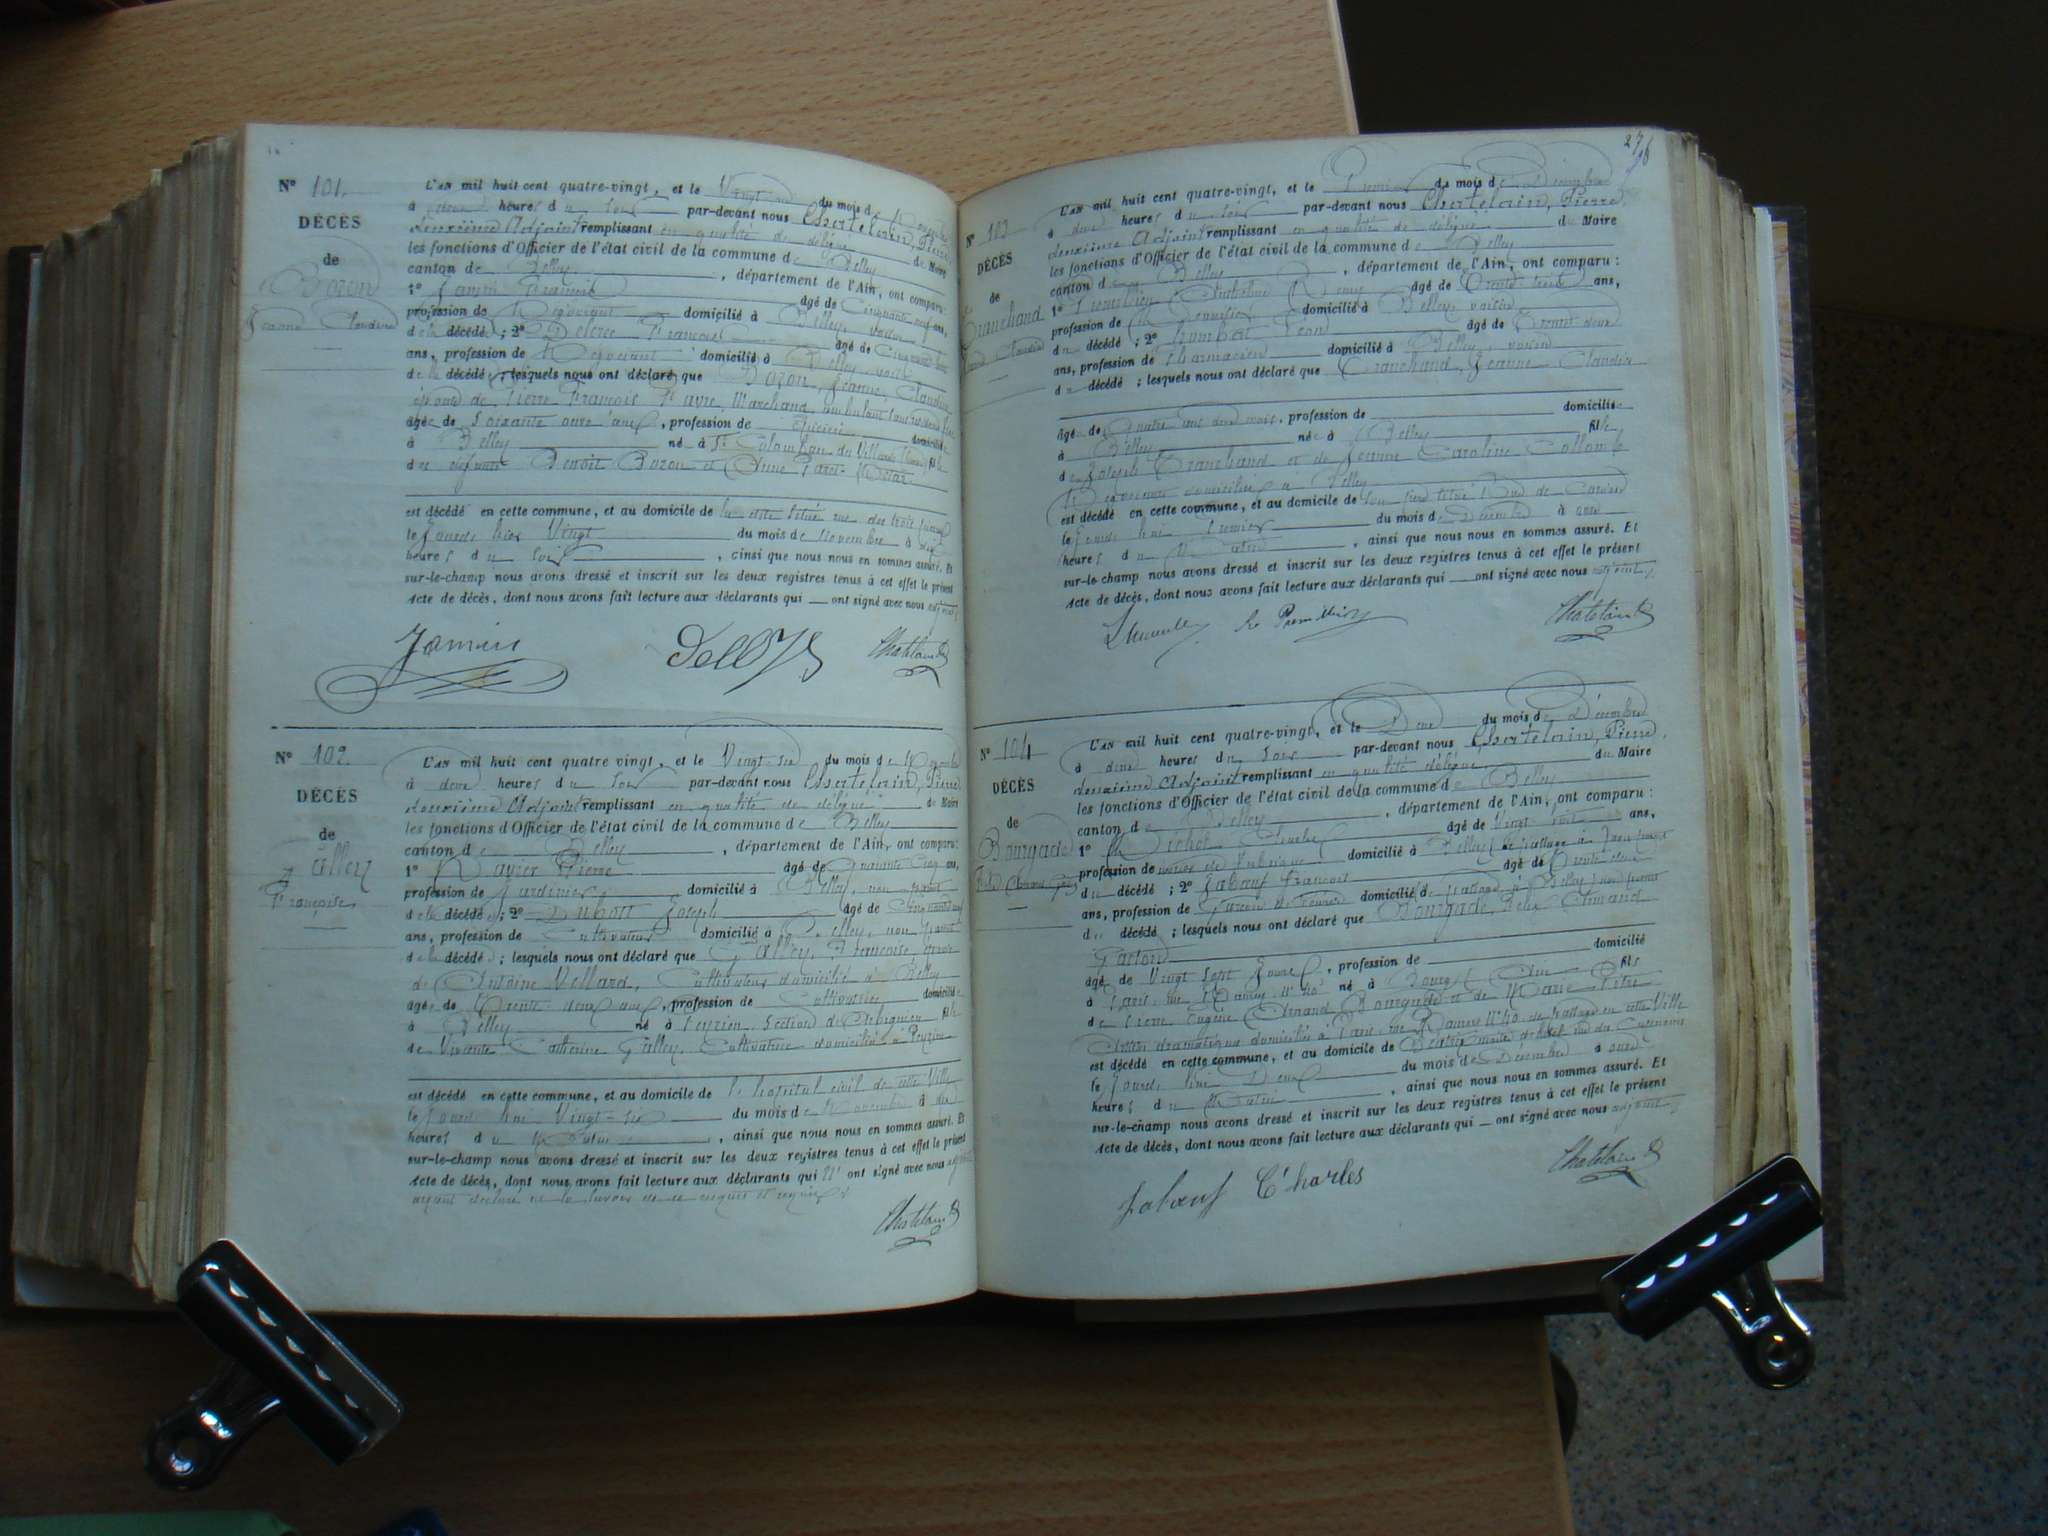 N° 101.
DÉCÈS
de
Bozon
Jeanne Claudine
L'AN mil huit cent quatre-vingt, et le Vingt du mois de Novembre
à heures du soir par-devant nous Chatelain, Pierre
deuxième Adjoint remplissant en qualité de délégué du Maire
les fonctions d'Officier de l'état civil de la commune de Belley
canton de Belley, département de l'Ain, ont comparu:
1° Jamin François âgé de Cinquante neuf ans,
profession de Négociant domicilié à Belley, voisin
de la décédée; 2° François âgé de Cinquante
ans, profession de Négociant domicilié à Belley voisin
de la décédée; lesquels nous ont déclaré que Bozon, Jeanne, Claudine
épouse de Pierre François Favre, Marchand ambulant
âgée de Soixante onze ans, profession de domiciliée
à Belley née à St Colomban du Villards fille
des défunts Benoit Bozon et Anne
est décédée en cette commune, et au domicile de rue des trois
le jourde hier Vingt du mois de Novembre à dix
heures du soir, ainsi que nous nous en sommes assuré. Et
sur-le-champ nous avons dressé et inscrit sur les deux registres tenus à cet effet le présent
Acte de décès, dont nous avons fait lecture aux déclarants qui ont signé avec nous adjoint
Jamin Chatelain
N° 102.
DÉCÈS
de
Galley
Françoise
L'AN mil huit cent quatre-vingt, et le Vingt-six du mois de Novembre
à deux heures du soir par-devant nous Chatelain, Pierre
deuxième Adjoint remplissant en qualité de délégué du Maire
les fonctions d'Officier de l'état civil de la commune de Belley
canton de Belley, département de l'Ain, ont comparu:
1° Pierre âgé de Quarante Cinq ans,
profession de Jardinier domicilié à Belley, non parent
de la décédée; 2° Dubois Joseph âgé de Cinquante
ans, profession de Cultivateur domicilié à Belley, non parent
de la décédée; lesquels nous ont déclaré que Galley, Françoise, épouse
de Antoine Vellard, Cultivateur domicilié à Belley
âgée de Trente deux ans, profession de Cultivatrice domiciliée
à Belley née à Peyrieu, Section de fille
de Vivante Catherine Galley, Cultivatrice domiciliée à Peyrieu
est décédée en cette commune, et au domicile de l'hopital civil de cette Ville
le jourd'hui Vingt-six du mois de Novembre à dix
heures du Matin, ainsi que nous nous en sommes assuré. Et
sur-le-champ nous avons dressé et inscrit sur les deux registres tenus à cet effet le présent
Acte de décès, dont nous avons fait lecture aux déclarants qui n' ont signé avec nous adjoint
ayant déclaré ne le savoir de ce enquis et requis
Chatelain
27
N° 103
DÉCÈS
de
Tranchand
Jeanne Claudine
L'AN mil huit cent quatre-vingt, et le Premier du mois de Décembre
à deux heures du soir par-devant nous Chatelain, Pierre,
deuxième Adjoint remplissant en qualité de délégué du Maire
les fonctions d'Officier de l'état civil de la commune de Belley
canton de Belley, département de l'Ain, ont comparu:
1° Anthelme Remy âgé de Trente trois ans,
profession de domicilié à Belley voisin
du décédé; 2° Léon âgé de Trente deux
ans, profession de Pharmacien domicilié à Belley, voisin
du décédé; lesquels nous ont déclaré que Tranchand, Jeanne Claudine
âgée de Quatre ans deux mois, profession de domiciliée
à Belley née à Belley fille
de Joseph Tranchand et de Jeanne Caroline Collomb
Négociants domiciliés à Belley
est décédé en cette commune, et au domicile de son père situé Rue de
le jourd'hui Premier du mois de Décembre à onze
heures du Matin, ainsi que nous nous en sommes assuré. Et
sur-le-champ nous avons dressé et inscrit sur les deux registres tenus à cet effet le présent
Acte de décès, dont nous avons fait lecture aux déclarants qui ont signé avec nous adjoint.
Chatelain
N° 104
DÉCÈS
de
Bourgade
L'AN mil huit cent quatre-vingt, et le Deux du mois de Décembre
à deux heures du soir par-devant nous Chatelain, Pierre,
deuxième Adjoint remplissant en qualité délégué du Maire
les fonctions d'Officier de l'état civil de la commune de Belley
canton de Belley, département de l'Ain, ont comparu:
1° Michel Charles âgé de Vingt ans,
profession de domicilié à Belley de passage
du décédé; 2° Jabœuf François âgé de Trente deux
ans, profession de Garçon de domicilié de passage à Belley non parent
du décédé; lesquels nous ont déclaré que Bourgade, Félix Armand
Gaston
âgé de Vingt Sept Jours, profession de domicilié
à Paris, rue Ramey N° 40 né à Bourg (Ain) fils
de Pierre Eugène Armand Bourgade et de Marie
Artistes dramatiques domiciliés à Paris rue Ramey N° 40 de passage en cette Ville
est décédé en cette commune, et au domicile de maître d'hôtel rue du
le jourd'hui Deux du mois de Décembre à onze
heures du Matin, ainsi que nous nous en sommes assuré. Et
sur-le-champ nous avons dressé et inscrit sur les deux registres tenus à cet effet le présent
Acte de décès, dont nous avons fait lecture aux déclarants qui ont signé avec nous adjoint,
Jabœuf Charles Chatelain